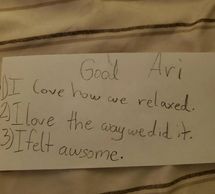 Good Ari
1) I love how we relaxed.
2) I love the way we did it.
3) I felt awsome.